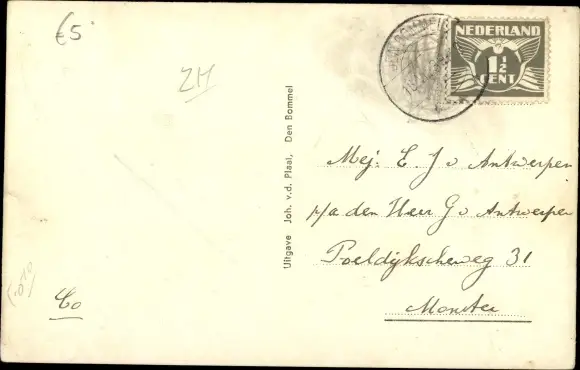 €5
ZH
NEDERLAND
1½
CENT
Uitgave Joh. v.d. Plaal, Den Bommel
Mej: E. J v Antwerpen
p/a den Heer G v Antwerpen
Poeldijkscheweg 31
Monster
Co